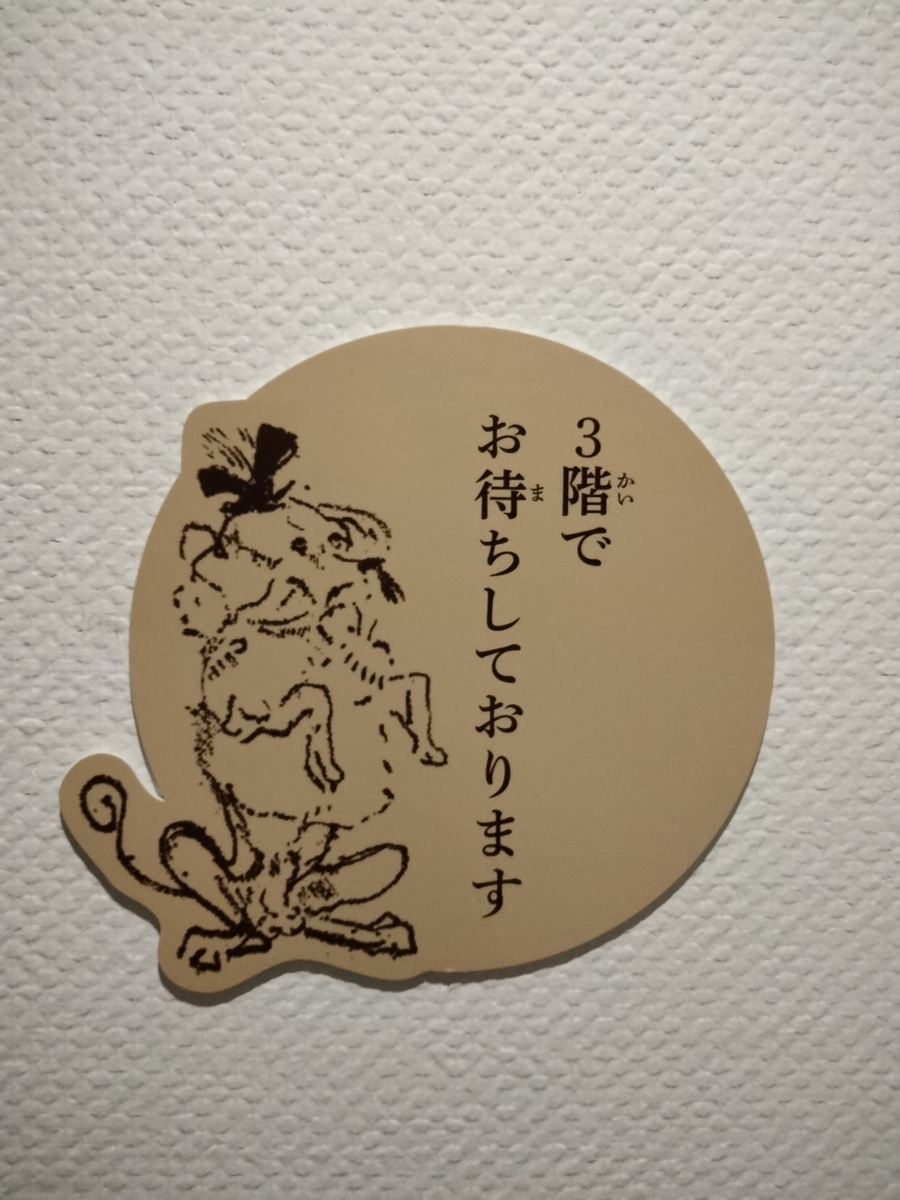 3階で
お待ちしております